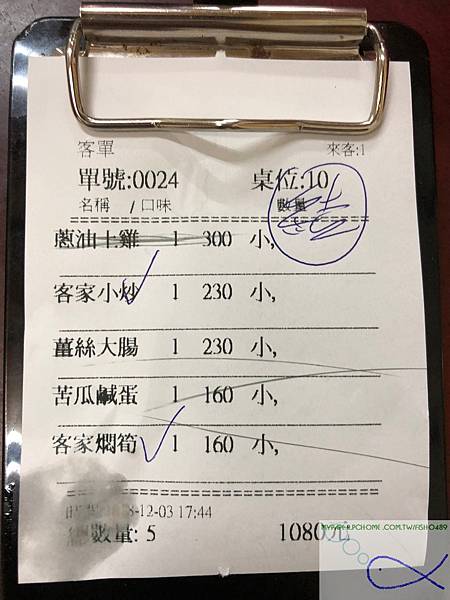 客單 來客:1
單號:0024 桌位:10
名稱 /口味 數量
蔥油土雞 1 300 小,
客家小炒 1 230 小,
薑絲大腸 1 230 小,
苦瓜鹹蛋 1 160 小,
客家燜筍 1 160 小,
8-12-03 17:44
總數量: 5 1080元